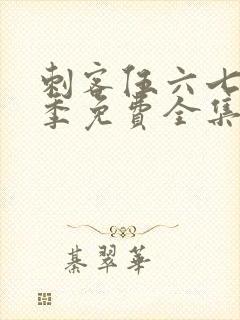 刺客伍六七
季免費全集
綦翠華